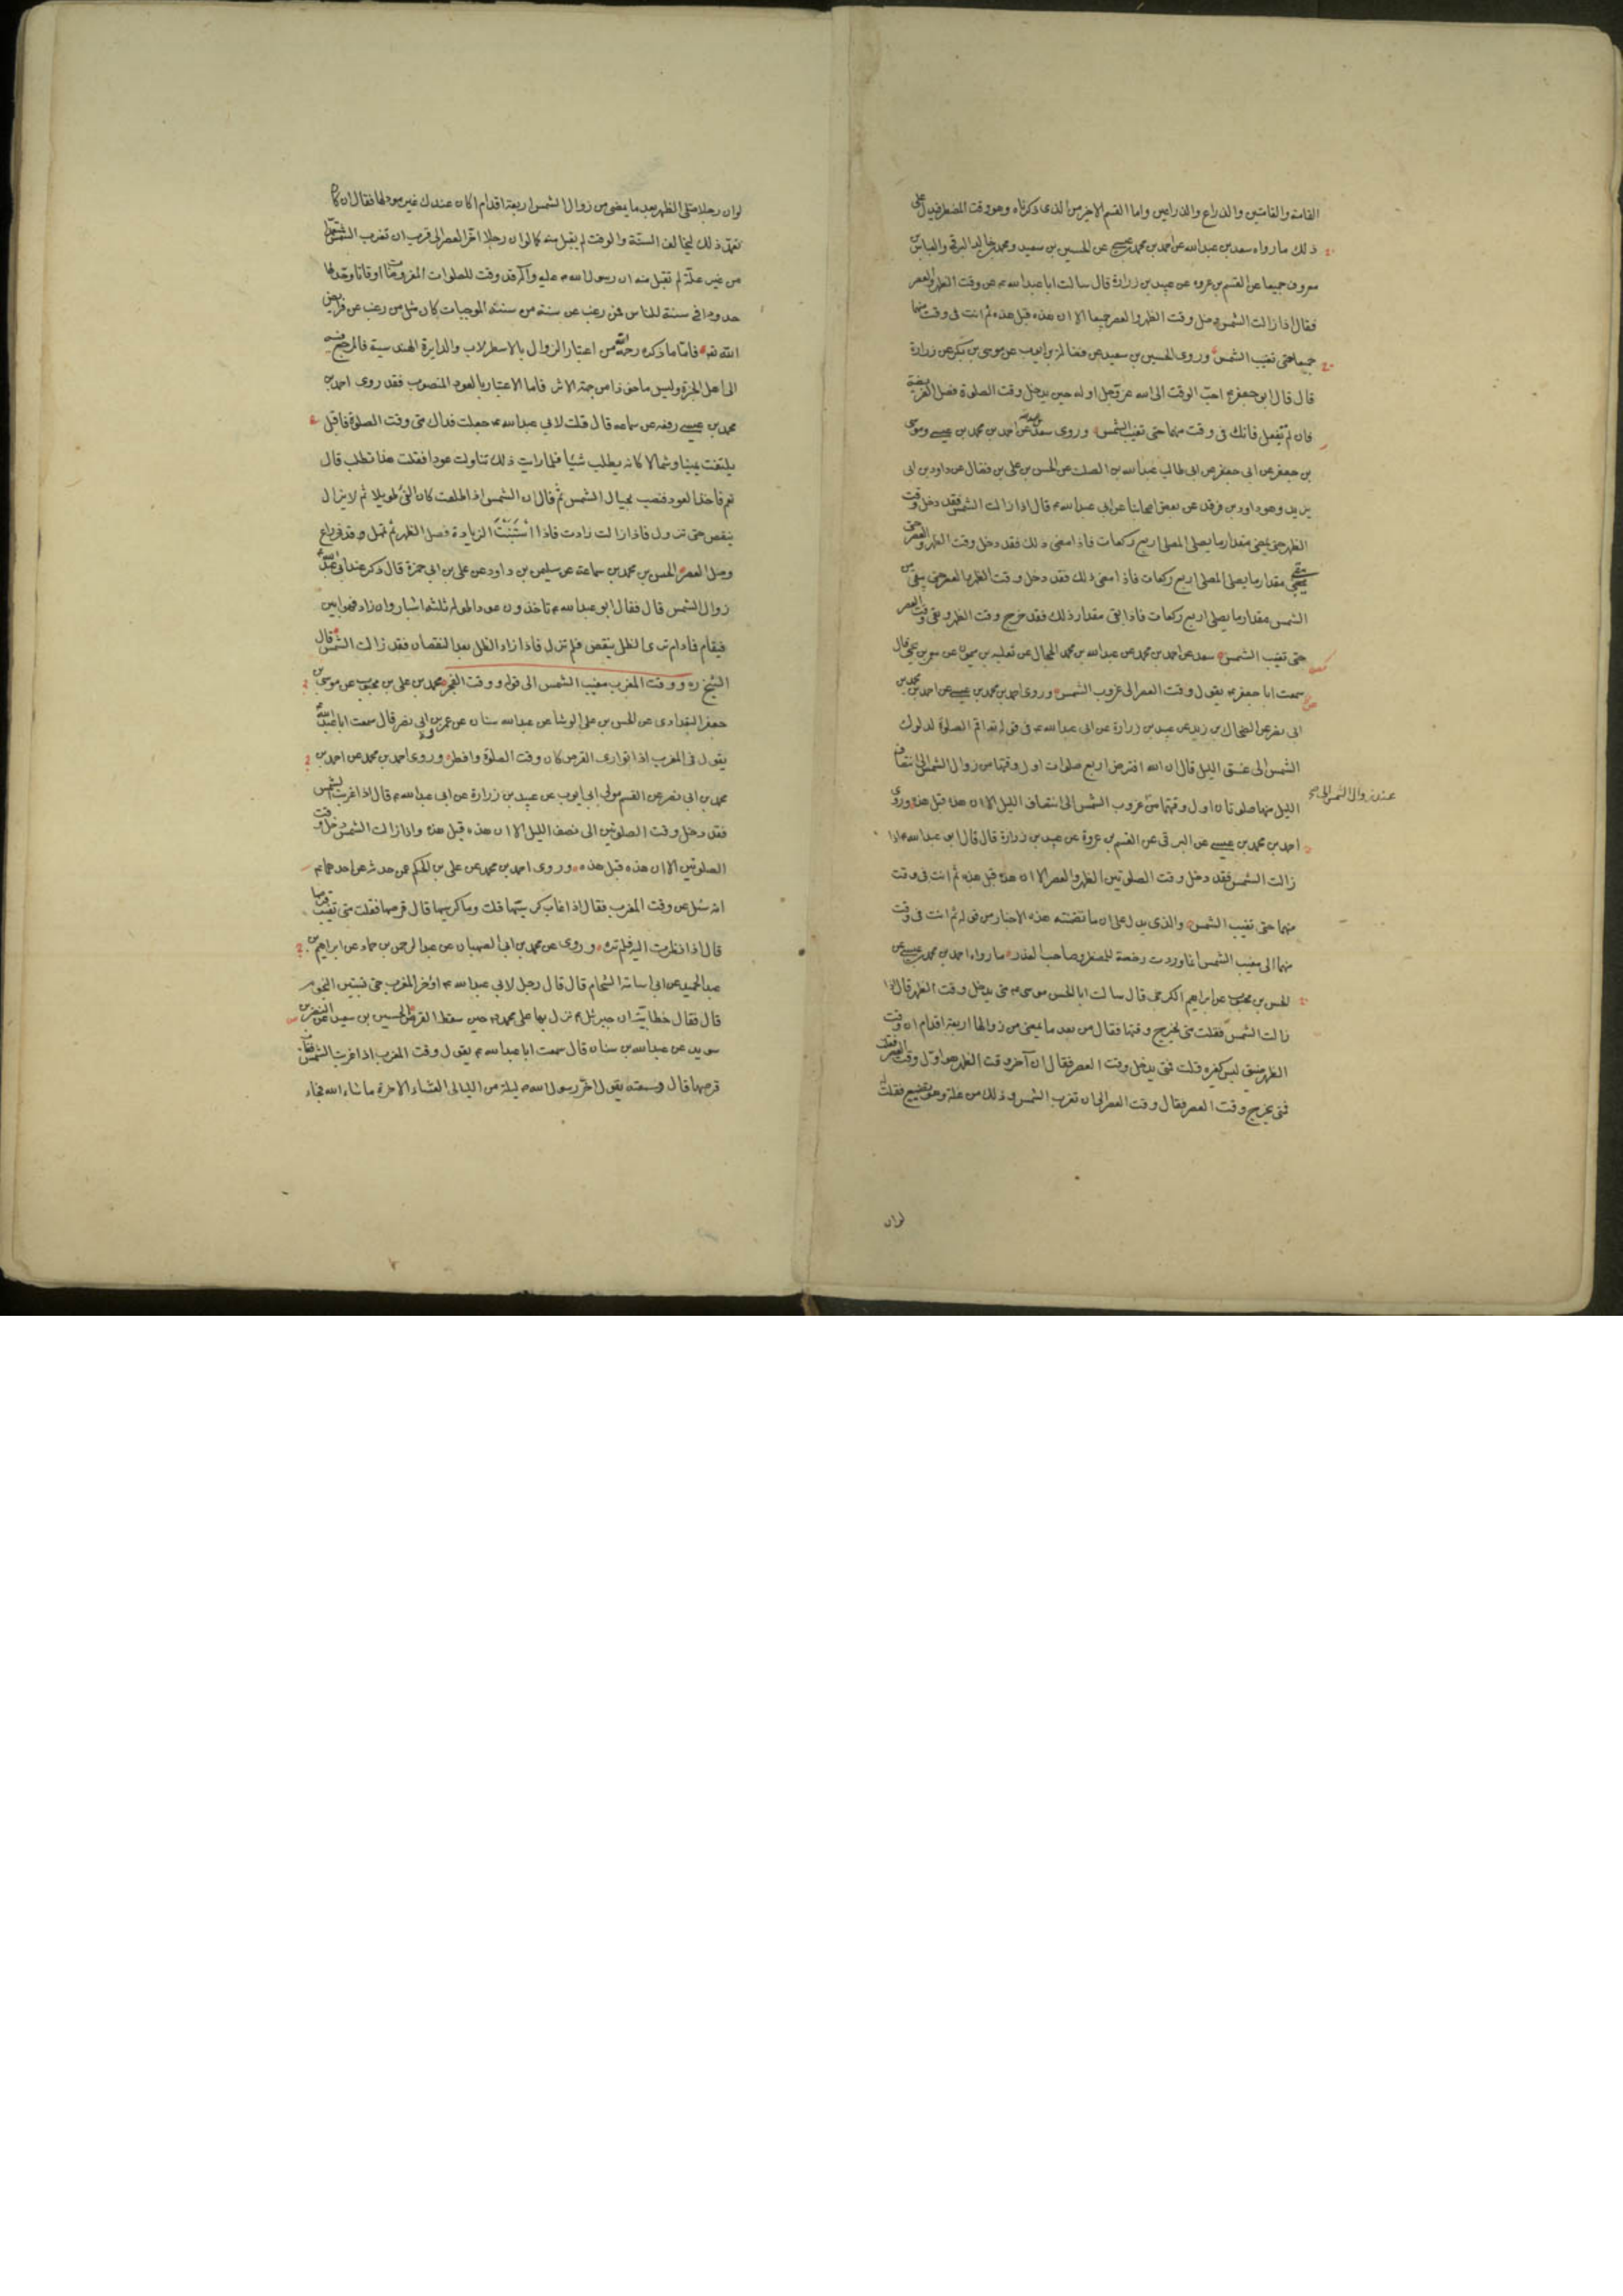 القامة والقامتين والذراع والذراعين واما القسم الاخر من الذى ذكرناه وهو وقت المضطر فيدل على
ذلك ما رواه سعد بن عبد الله عن احمد بن محمد بن عيسى عن الحسين بن سعيد ومحمد بن خالد البرقى والعباس بن
معروف جميعا عن القسم بن عروه عن عبيد بن زرارة قال سالت ابا عبد الله ع عن وقت الظهر والعصر
فقال اذا زالت الشمس دخل وقت الظهر والعصر جميعا الا ان هذه قبل هذه ثم انت فى وقت منهما
جميعا حتى تغيب الشمس وروى الحسين بن سعيد عن فضالة بن ايوب عن موسى بن بكر عن زرارة
قال قال ابو جعفر ع احب الوقت الى الله عز وجل اوله حين يدخل وقت الصلوة فصل الفريضة
فان لم تفعل فانك فى وقت منهما حتى تغيب الشمس وروى سعد بن عبد الله عن احمد بن محمد بن عيسى وموسى
بن جعفر عن ابى جعفر عن ابى طالب عبد الله بن الصلت عن الحسن بن على بن فضال عن داود بن ابى
يزيد وهو داود بن فرقد عن بعض اصحابنا عن ابى عبد الله ع قال اذا زالت الشمس فقد دخل وقت
الظهر حتى يمضى مقدار ما يصلى المصلى اربع ركعات فاذا مضى ذلك فقد دخل وقت الظهر والعصر حتى
يبقى مقدار ما يصلى المصلى اربع ركعات فاذا مضى ذلك فقد دخل وقت الظهر والعصر حتى يبقى من
الشمس مقدار ما يصلى اربع ركعات فاذا بقى مقدار ذلك فقد خرج وقت الظهر وبقى وقت العصر
حتى تغيب الشمس سعد عن احمد بن محمد عن عبد الله بن محمد الحجال عن ثعلبه بن ميمون عن معمر بن يحيى قال
سمعت ابا جعفر ع يقول وقت العصر الى غروب الشمس وروى احمد بن محمد بن عيسى عن احمد بن محمد بن
ابى نصر عن الضحاك بن زيد عن عبيد بن زرارة عن ابى عبد الله ع فى قوله تعالى اقم الصلوة لدلوك
الشمس الى غسق الليل قال ان الله افترض اربع صلوات اول وقتها من زوال الشمس الى انتصاف
الليل منها صلوتان اول وقتهما من غروب الشمس الى انتصاف الليل الا ان هذه قبل هذه وروى
عند زوال الشمس الى صح
احمد بن محمد بن عيسى عن البرقى عن القسم بن عروة عن عبيد بن زرارة قال قال ابو عبد الله ع اذا
زالت الشمس فقد دخل وقت الصلوتين الظهر والعصر الا ان هذه قبل هذه ثم انت فى وقت
منهما حتى تغيب الشمس والذى يدل على ان ما تضمنته هذه الاخبار من قوله ثم انت فى وقت
منهما الى مغيب الشمس انما وردت رخصة للمضطر وصاحب العذر ما رواه احمد بن محمد بن عيسى عن
الحسن بن محبوب عن ابراهيم الكرخى قال سالت ابا الحسن موسى ع متى يدخل وقت الظهر قال اذا
زالت الشمس فقلت متى يخرج وقتها فقال من بعد ما يمضى من زوالها اربعة اقدام ان وقت
الظهر ضيق ليس كغيره قلت فمتى يدخل وقت العصر فقال ان آخر وقت الظهر هو اول وقت العصر فقلت
فمتى يخرج وقت العصر فقال وقت العصر الى ان تغرب الشمس وذلك من علة وهو تضييع فقلت له
لوان
لوان رجلا صلى الظهر بعد ما يمضى من زوال الشمس اربعة اقدام اكان عندك غير مود لها فقال ان كان
تعمد ذلك ليخالف السنة والوقت لم يقبل منه كما لو ان رجلا اخر العصر الى قرب ان تغرب الشمس متعمدا
من غير علة لم تقبل منه ان رسول الله ص عليه وآله قد وقت للصلوات المفروضات اوقاتا وحد لها
حدودا فى سنة للناس فمن رغب عن سنة من سننه الموجبات كان مثل من رغب عن فرايض
الله تعه فاما ما ذكره رحمه الله من اعتبار الزوال بالاسطرلاب والدايرة الهندسية فالمرجع فيه
الى اهل الخبرة وليس ماخوذا من جهة الاثر فاما الاعتبار بالعود المنصوب فقد روى احمد بن
محمد بن عيسى رفعه عن سماعه قال قلت لابى عبد الله ع جعلت فداك متى وقت الصلوة فاقبل
يلتفت يمينا وشمالا كانه يطلب شيئا فلما رايت ذلك تناولت عودا فقلت هذا تطلب قال
نعم فاخذ العود فنصب بحيال الشمس ثم قال ان الشمس اذا طلعت كان الفئ طويلا ثم لا يزال
ينقص حتى تزول فاذا زالت زادت فاذا استبنت الزيادة فصل الظهر ثم تمهل قدر ذراع
وصل العصر الحسن بن محمد بن سماعة عن سليمن بن داود عن على بن ابى حمزة قال ذكر عند ابى عبد الله ع
زوال الشمس قال فقال ابو عبد الله ع تاخذون عودا طوله ثلثة اشبار وان زاد فهو ابين
فيقام فما دام ترى الظل ينقص فلم تزل فاذا زاد الظل بعد النقصان فقد زالت الشمس قال
الشيخ ره ووقت المغرب مغيب الشمس الى قوله ووقت الفجر محمد بن على بن محبوب عن موسى بن
جعفر البغدادى عن الحسن بن على الوشا عن عبد الله سنان عن عمرو بن ابى نصر قال سمعت ابا عبد الله ع
يقول فى المغرب اذا توارى القرص كان وقت الصلوة وافطر وروى احمد بن محمد عن احمد بن
محمد بن ابى نصر عن القسم مولى ابى ايوب عن عبيد بن زرارة عن ابى عبد الله ع قال اذا غربت الشمس
فقد دخل وقت الصلوتين الى نصف الليل الا ان هذه قبل هذه واذا زالت الشمس دخل وقت
الصلوتين الا ان هذه قبل هذه وروى احمد بن محمد عن على بن الحكم عمن حدثه عن احدهما ع
انه سئل عن وقت المغرب فقال اذا غاب كرسيها قلت وما كرسيها قال قرصها فقلت متى تغيب قرصها
قال اذا نظرت اليه فلم تره وروى عن محمد بن ابى الصهبان عن عبد الرحمن بن حماد عن ابراهيم بن
عبد الحميد عن ابى اسامة الشحام قال قال رجل لابى عبد الله ع اؤخر المغرب حتى تستبين النجوم
قال فقال خطابية ان جبرئيل ع نزل بها على محمد ص حين سقط القرص الحسين بن سعيد عن النضر بن
سويد عن عبد الله بن سنان قال سمعت ابا عبد الله ع يقول وقت المغرب اذا غربت الشمس فغاب
قرصها قال وسمعته يقول اخر رسول الله ص ليلة من الليالى العشاء الاخرة ما شاء الله فجاء